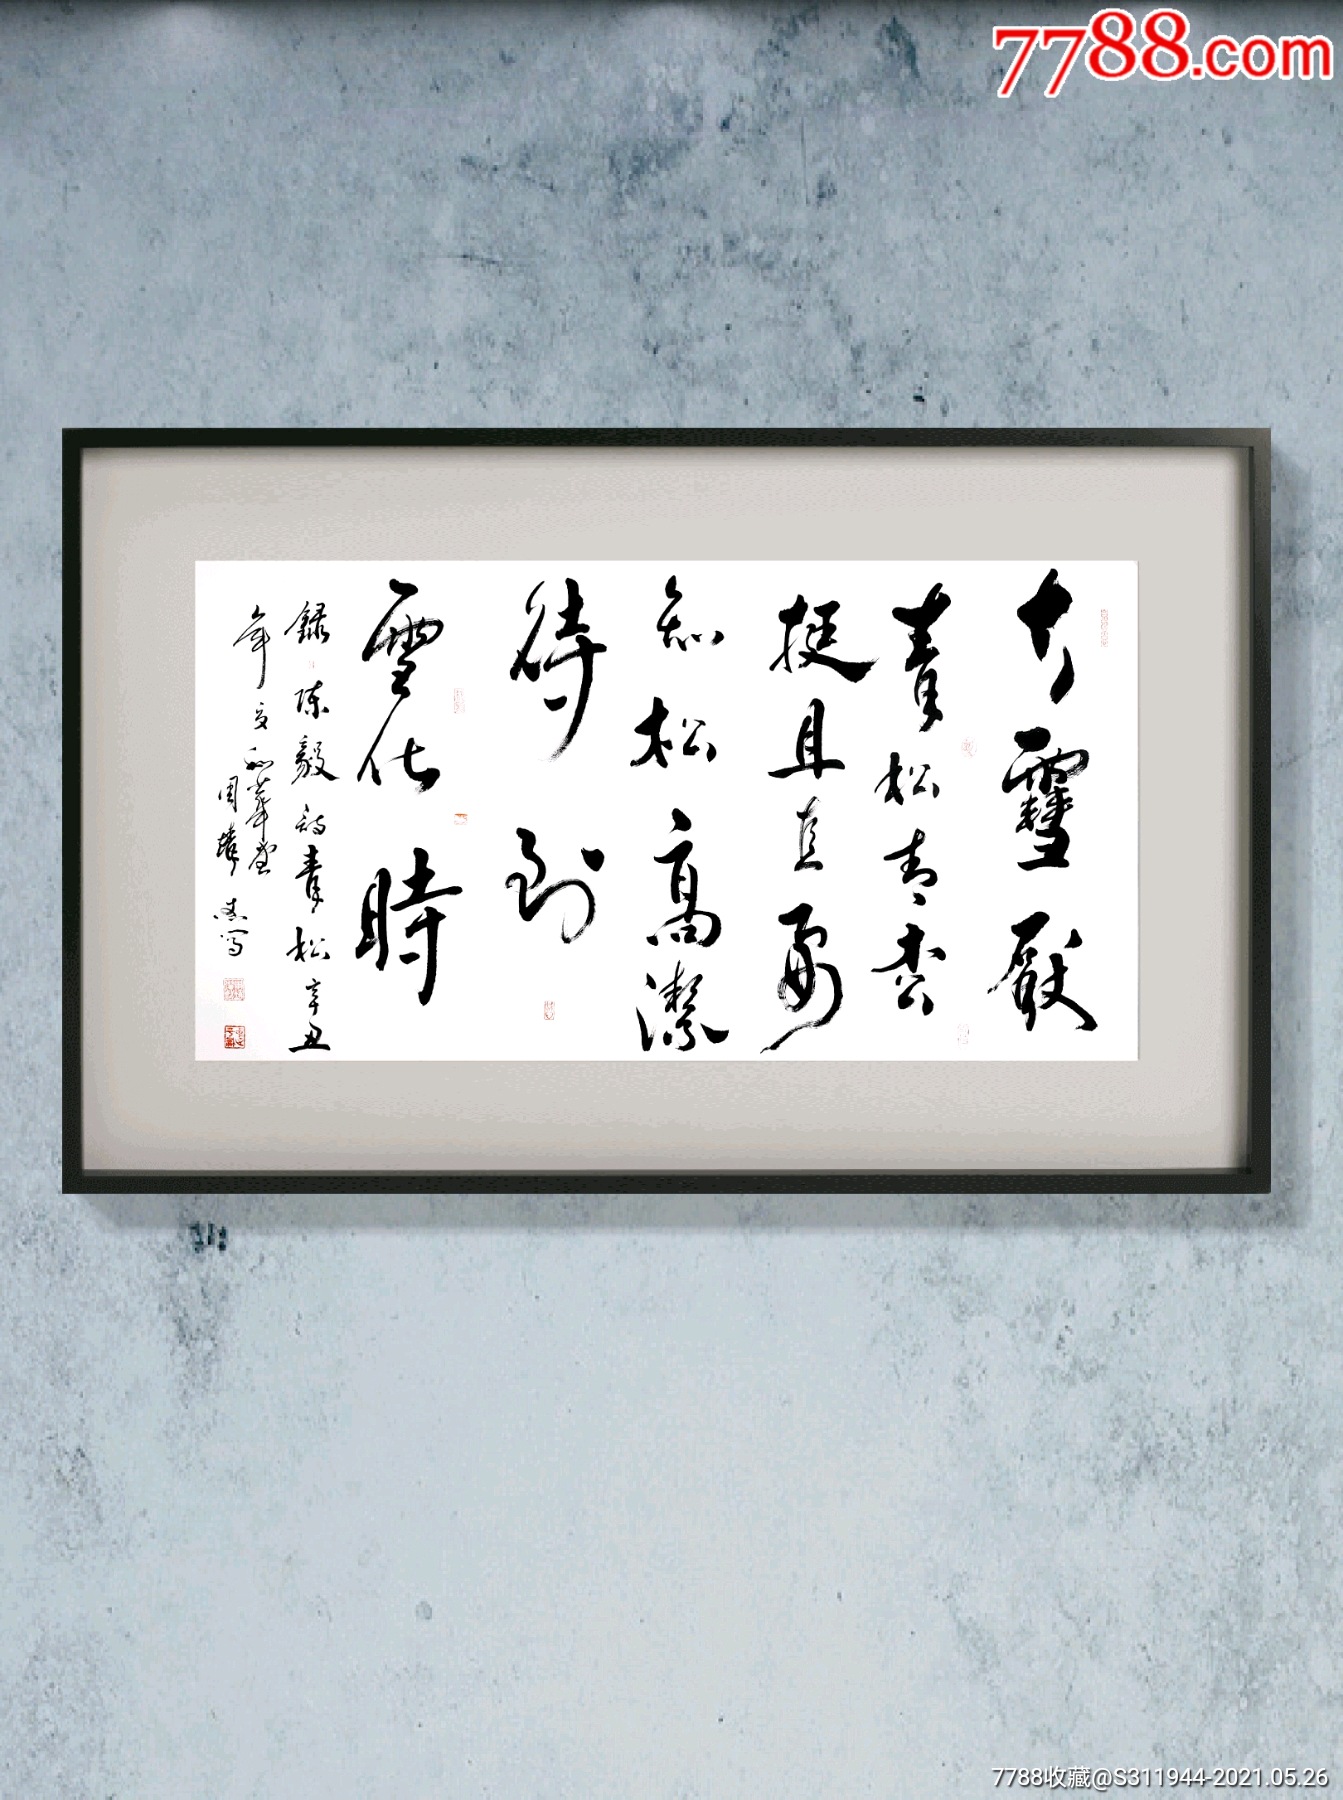 7788.com
大雪壓
青松青松
挺且直要
知松高潔
待到
雪化時
錄陳毅詩青松辛丑
年
周
7788收藏@S311944-2021.05.26